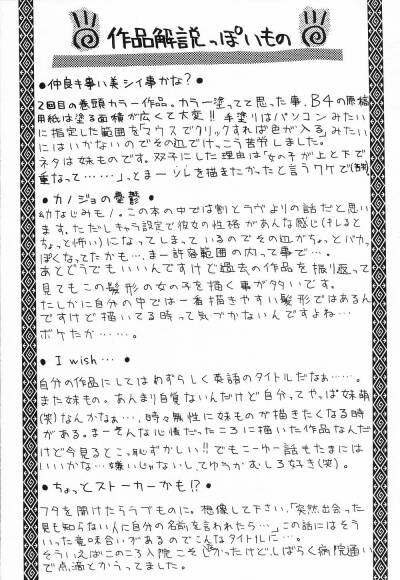 作品解説っぽいもの
●仲良き事い美シイ事かな？●
2回目の巻頭カラー作品。カラー塗ってて思った事、B4の原稿
用紙は塗る面積が広くて大変!! 手塗りはパソコンみたい
に指定した範囲を「マウスでクリックすれば色が入る」みたい
にはいかないのでその辺でけっこう苦労しました。
ネタは妹ものです。双子にした理由は「女の子が上と下で
重なって……」っとまーソレを描きたかったと言うワケで(害)
●カノジョの憂鬱●
幼なじみモノ。この本の中では割とラヴよりの話だと思い
ます。ただしキャラ設定で彼女の性格があんな感じ(キレると
ちょっと怖い)になってしまっているのでその辺がちょっとバカっ
ぽくなってたかも…。まー許容範囲の内って事で…。
あとどうでもいいんですけど過去の作品を振り返って
見てもこの髪形の女の子を描く事が多いです。
たしかに自分の中では一番描きやすい髪形ではあるん
ですけど描いてる時って気づかないんですよね…
ボケたか……。
●I wish…●
自分の作品にしてはめずらしく英語のタイトルだなぁ……。
また妹もの。あんまり自覚ないんだけど自分ってやっぱ妹萌
(笑)なんかなぁ…、時々無性に妹ものが描きたくなる時
がある。まーそんな心情だったころに描いた作品なんだ
けど今見るとこっ恥ずかしい!! でもこーゆー話もたまには
いいかな…嫌いじゃないしてゆうかむしろ好き(笑)。
●ちょっとストーカーかも!?●
フタを開けたらラブものに。想像して下さい、「突然出会った
見も知らない人に自分の名前を言われたら…」この話にはそう
いった意味合いがあるのでこんなタイトルに…。
そういえばこのころ入院こそしなかったけどしばらく病院通い
で点滴とかうってました。